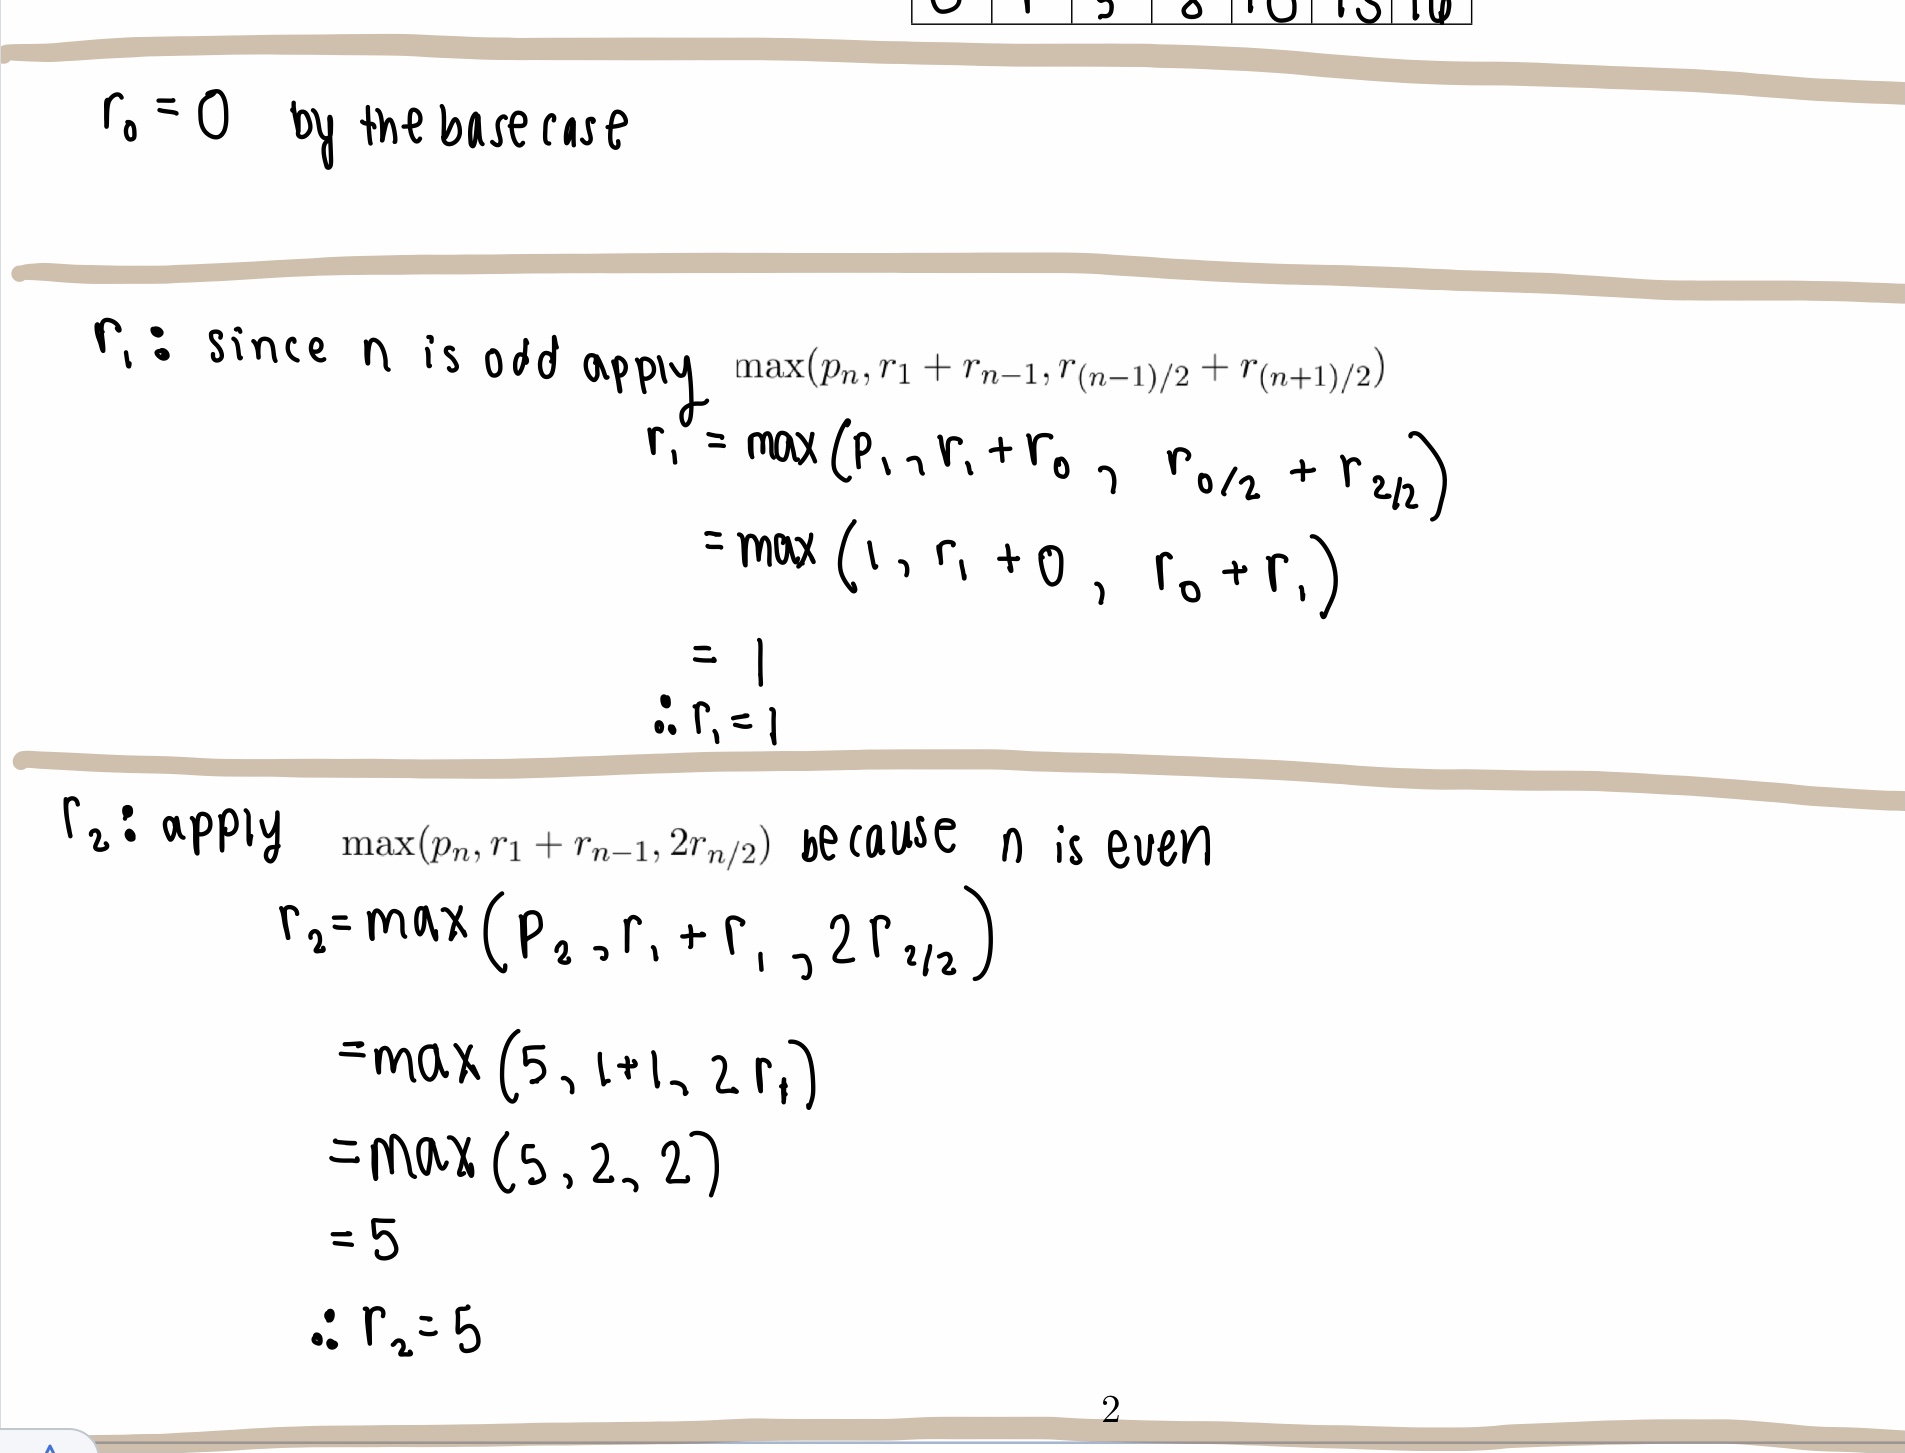 r₀ = 0 by the base case
r₁ : since n is odd apply max(pₙ, r₁ + rₙ₋₁, r₍ₙ₋₁₎/₂ + r₍ₙ₊₁₎/₂)
r₁ = max (p₁, r₁ + r₀, r₀/₂ + r₂/₂)
= max (1, r₁ + 0, r₀ + r₁)
= 1
∴ r₁ = 1
r₂ : apply max(pₙ, r₁ + rₙ₋₁, 2rₙ/₂) because n is even
r₂ = max (p₂, r₁ + r₁, 2r₂/₂)
= max (5, 1+1, 2r₁)
= max (5, 2, 2)
= 5
∴ r₂ = 5
2